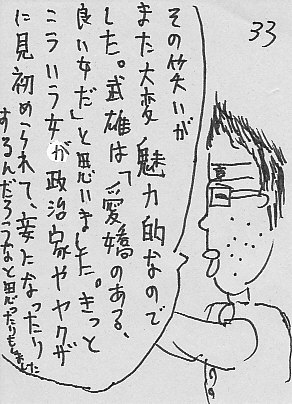 33
その笑いが
また大変魅力的なので
した。武雄は「愛嬌のある、
良い女だ」と思いました。きっと
こういう女が政治家やヤクザ
に見初められて、妾になったり
するんだろうなと思ったりもしました